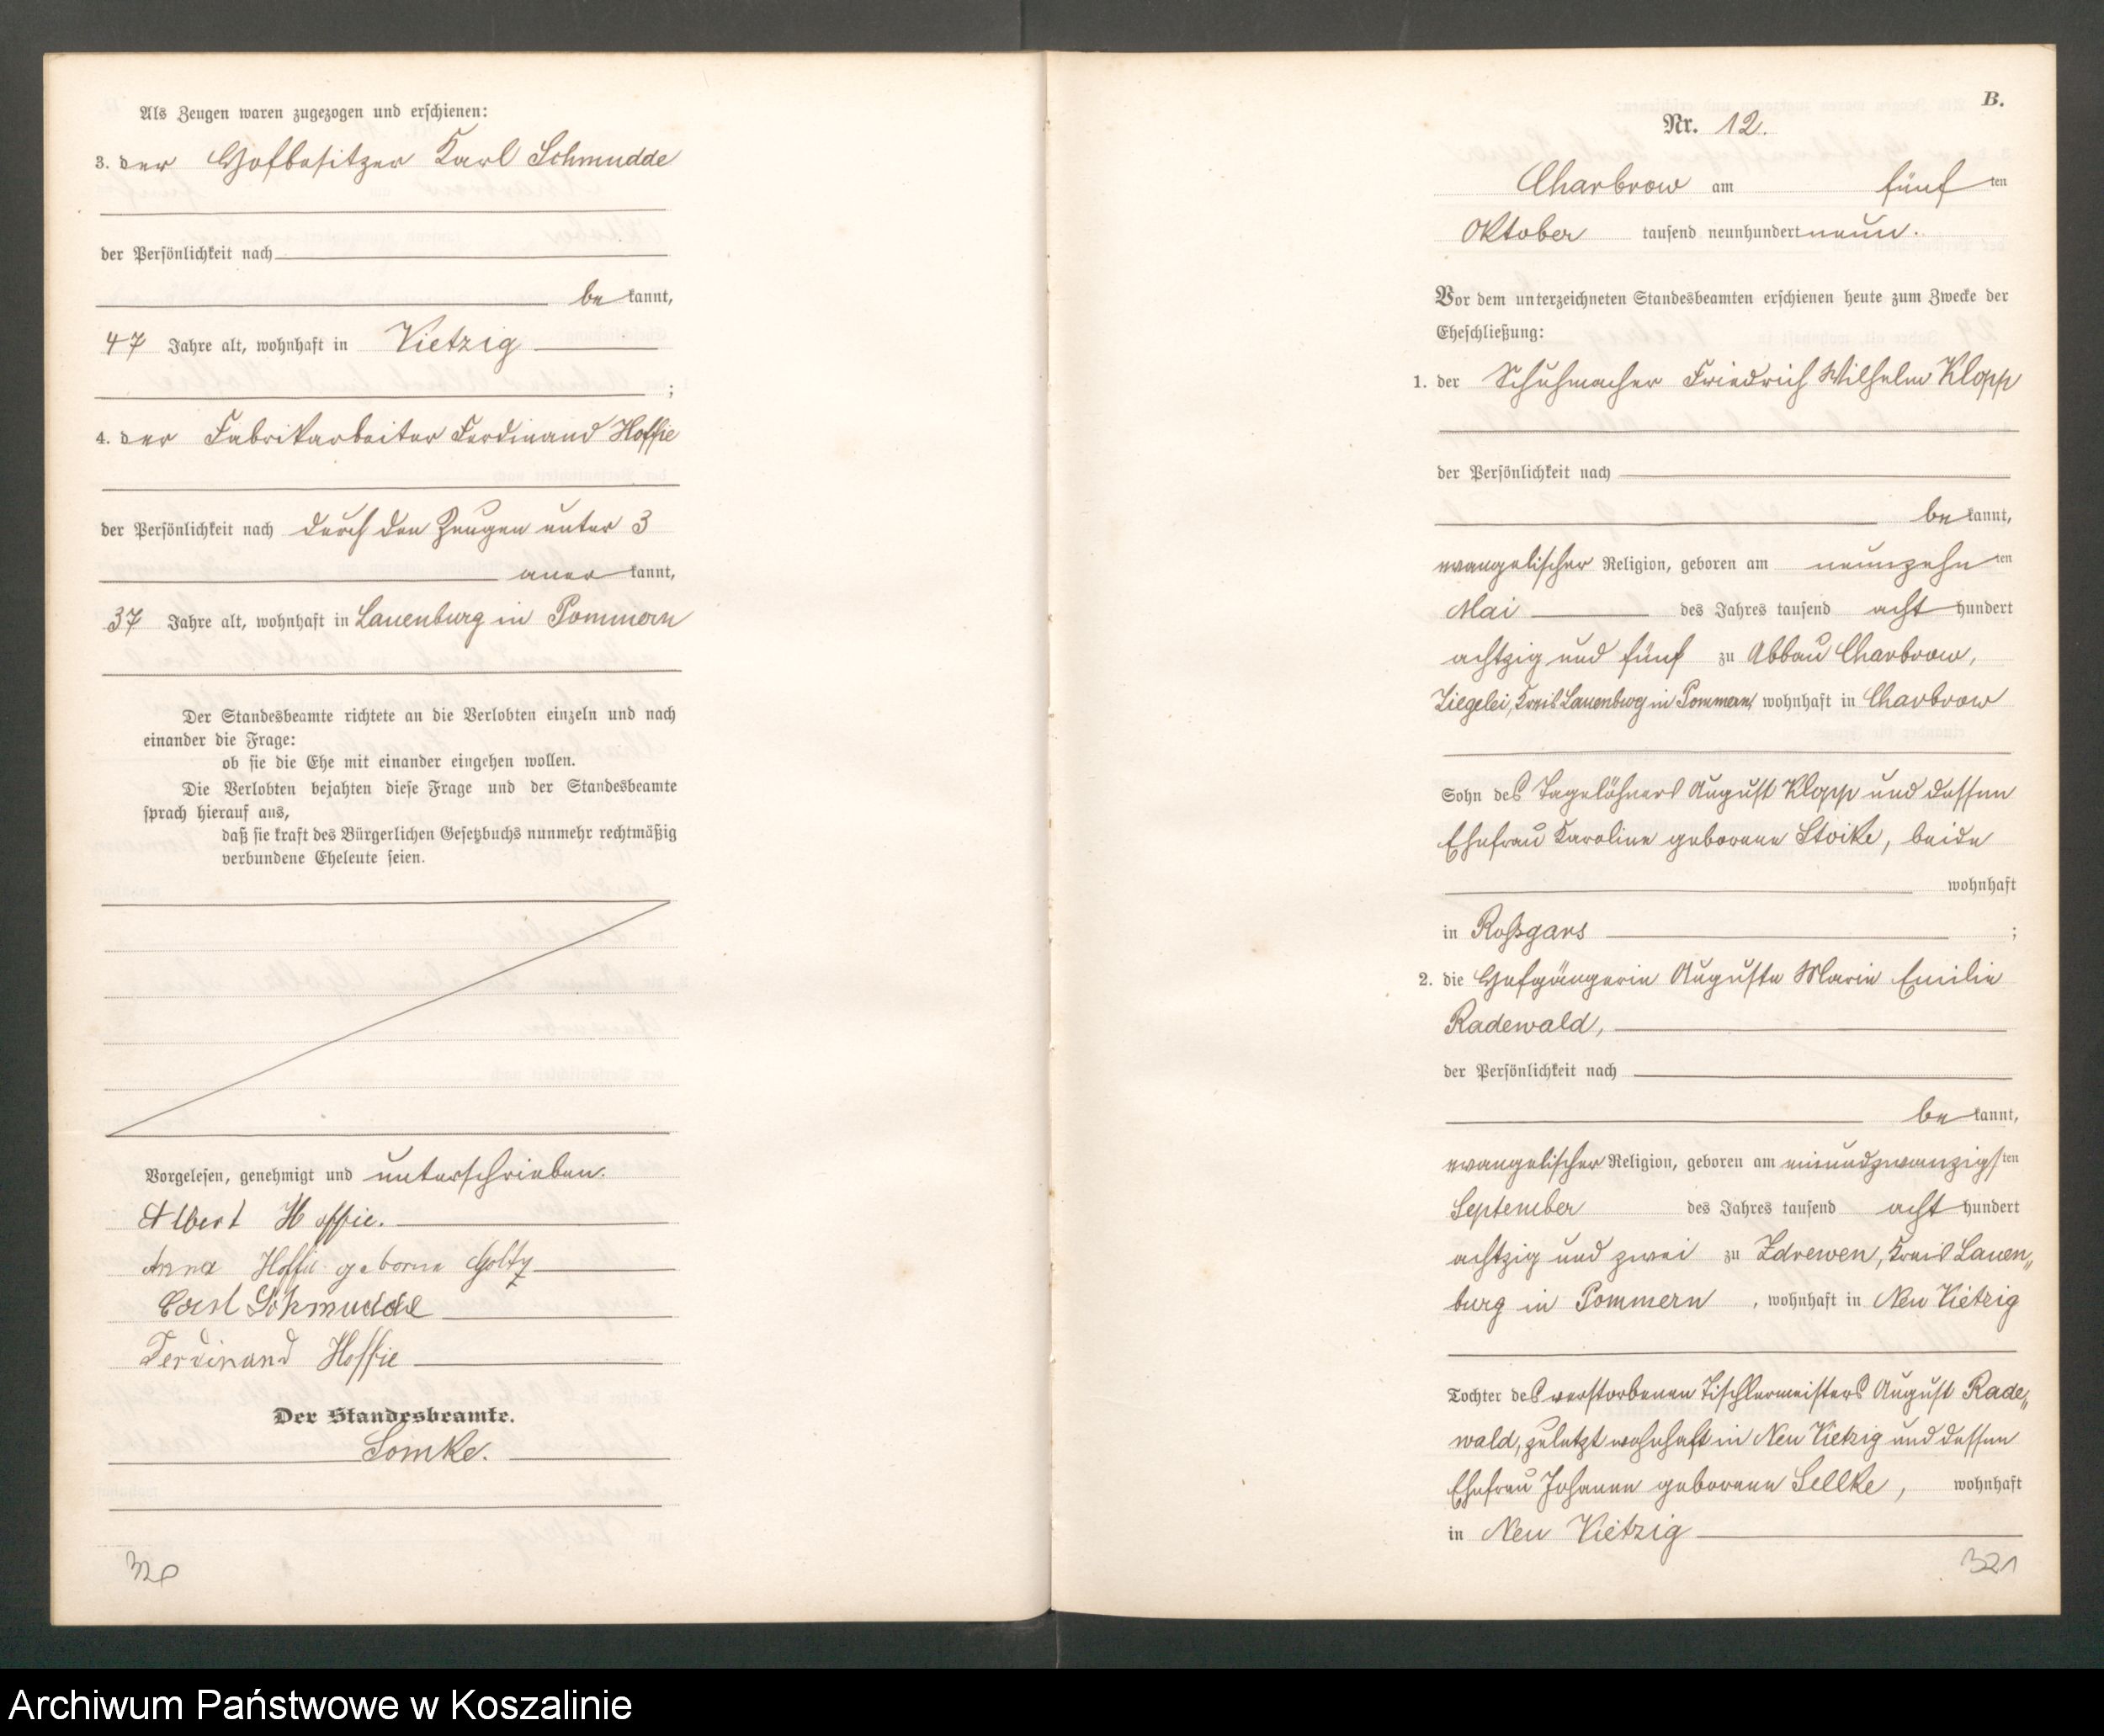 Als Zeugen waren zugezogen und erschienen:
3. der Hofbesitzer Karl Schmudde
der Persönlichkeit nach
be kannt,
47 Jahre alt, wohnhaft in Vietzig
;
4. der Fabrikarbeiter Ferdinand Hoffie
der Persönlichkeit nach durch den Zeugen unter 3
aner kannt,
37 Jahre alt, wohnhaft in Lauenburg in Pommern
Der Standesbeamte richtete an die Verlobten einzeln und nach
einander die Frage:
ob sie die Ehe mit einander eingehen wollen.
Die Verlobten bejahten diese Frage und der Standesbeamte
sprach hierauf aus,
daß sie kraft des Bürgerlichen Gesetzbuchs nunmehr rechtmäßig
verbundene Eheleute seien.
Vorgelesen, genehmigt und unterschrieben.
Albert Hoffie.
Anna Hoffie geborne Goltz
Carl Schmudde
Ferdinand Hoffie
Der Standesbeamte.
Lomke.
320
B.
Nr. 12.
Charbrow am fünf ten
Oktober tausend neunhundert neun.
Vor dem unterzeichneten Standesbeamten erschienen heute zum Zwecke der
Eheschließung:
1. der Schuhmacher Friedrich Wilhelm Klopp
der Persönlichkeit nach
be kannt,
evangelischer Religion, geboren am neunzehn ten
Mai des Jahres tausend acht hundert
achtzig und fünf zu Abbau Charbrow,
Ziegelei, Kreis Lauenburg in Pommern, wohnhaft in Charbrow
Sohn des Tagelöhners August Klopp und dessen
Ehefrau Karoline geborene Stoike, beide
wohnhaft
in Roßgars ;
2. die Hofgängerin Auguste Marie Emilie
Radewald,
der Persönlichkeit nach
be kannt,
evangelischer Religion, geboren am einundzwanzigs ten
September des Jahres tausend acht hundert
achtzig und zwei zu Zdrewen, Kreis Lauen„
burg in Pommern , wohnhaft in Neu Vietzig
Tochter des verstorbenen Tischlermeisters August Rade„
wald, zuletzt wohnhaft in Neu Vietzig und dessen
Ehefrau Johanne geborene Sellke, wohnhaft
in Neu Vietzig
321
Archiwum Państwowe w Koszalinie